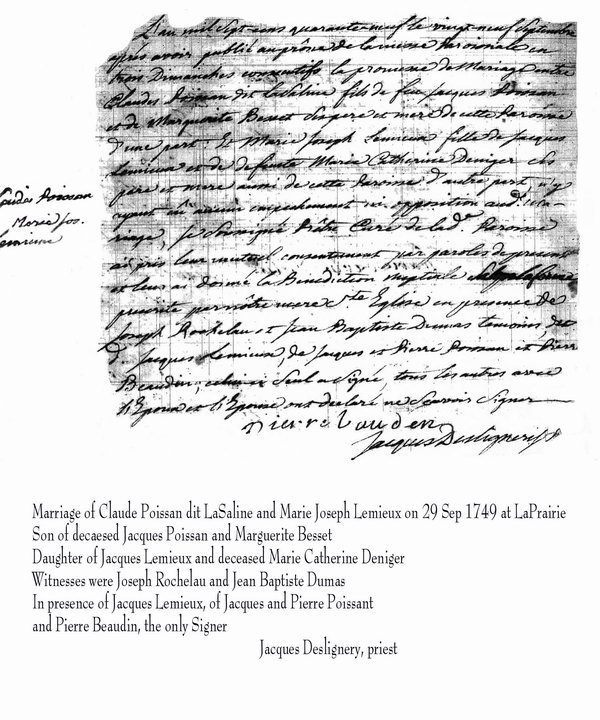 L'an mil sept cens quarante neuf le vingt neuf septembre
après avoir publié au prône de la messe Paroissiale en
trois Dimanches consecutifs la promesse de Mariage entre
Claudes Poissan dit LaSaline fils de feu Jacques Poissan
et de Marguerite Besset ses pere et mere de cette Paroisse
d'une part. Et Marie Joseph Lemieux fille de Jacques
Lemieux et de defunte Marie Catherine Deniger ses
pere et mere aussi de cette Paroisse d'autre part, n'y
ayant aucun empechement ni opposition audit ma-
riage, Je Soussigné Prêtre Curé de la de Paroisse
ai pris leur mutuel consentement par paroles de present
et leur ai donné la Benediction nuptiale selon la forme
prescrite par nôtre mere Ste Eglise en presence de
Joseph Rochelau et Jean Baptiste Dumas temoins, de
Jacques Lemieux, de Jacques et Pierre Poissan et Pierre
Beaudin, celui ci Seul a Signé, tous les autres avec
l'Epoux et l'Epouse ont declaré ne Scavoir Signer
Claudes Poissan
Marie Jos.
Lemieux
Pierre bauden
Jacques Deslignerist
Marriage of Claude Poissan dit LaSaline and Marie Joseph Lemieux on 29 Sep 1749 at LaPrairie
Son of decaesed Jacques Poissan and Marguerite Besset
Daughter of Jacques Lemieux and deceased Marie Catherine Deniger
Witnesses were Joseph Rochelau and Jean Baptiste Dumas
In presence of Jacques Lemieux, of Jacques and Pierre Poissant
and Pierre Beaudin, the only Signer
Jacques Deslignery, priest